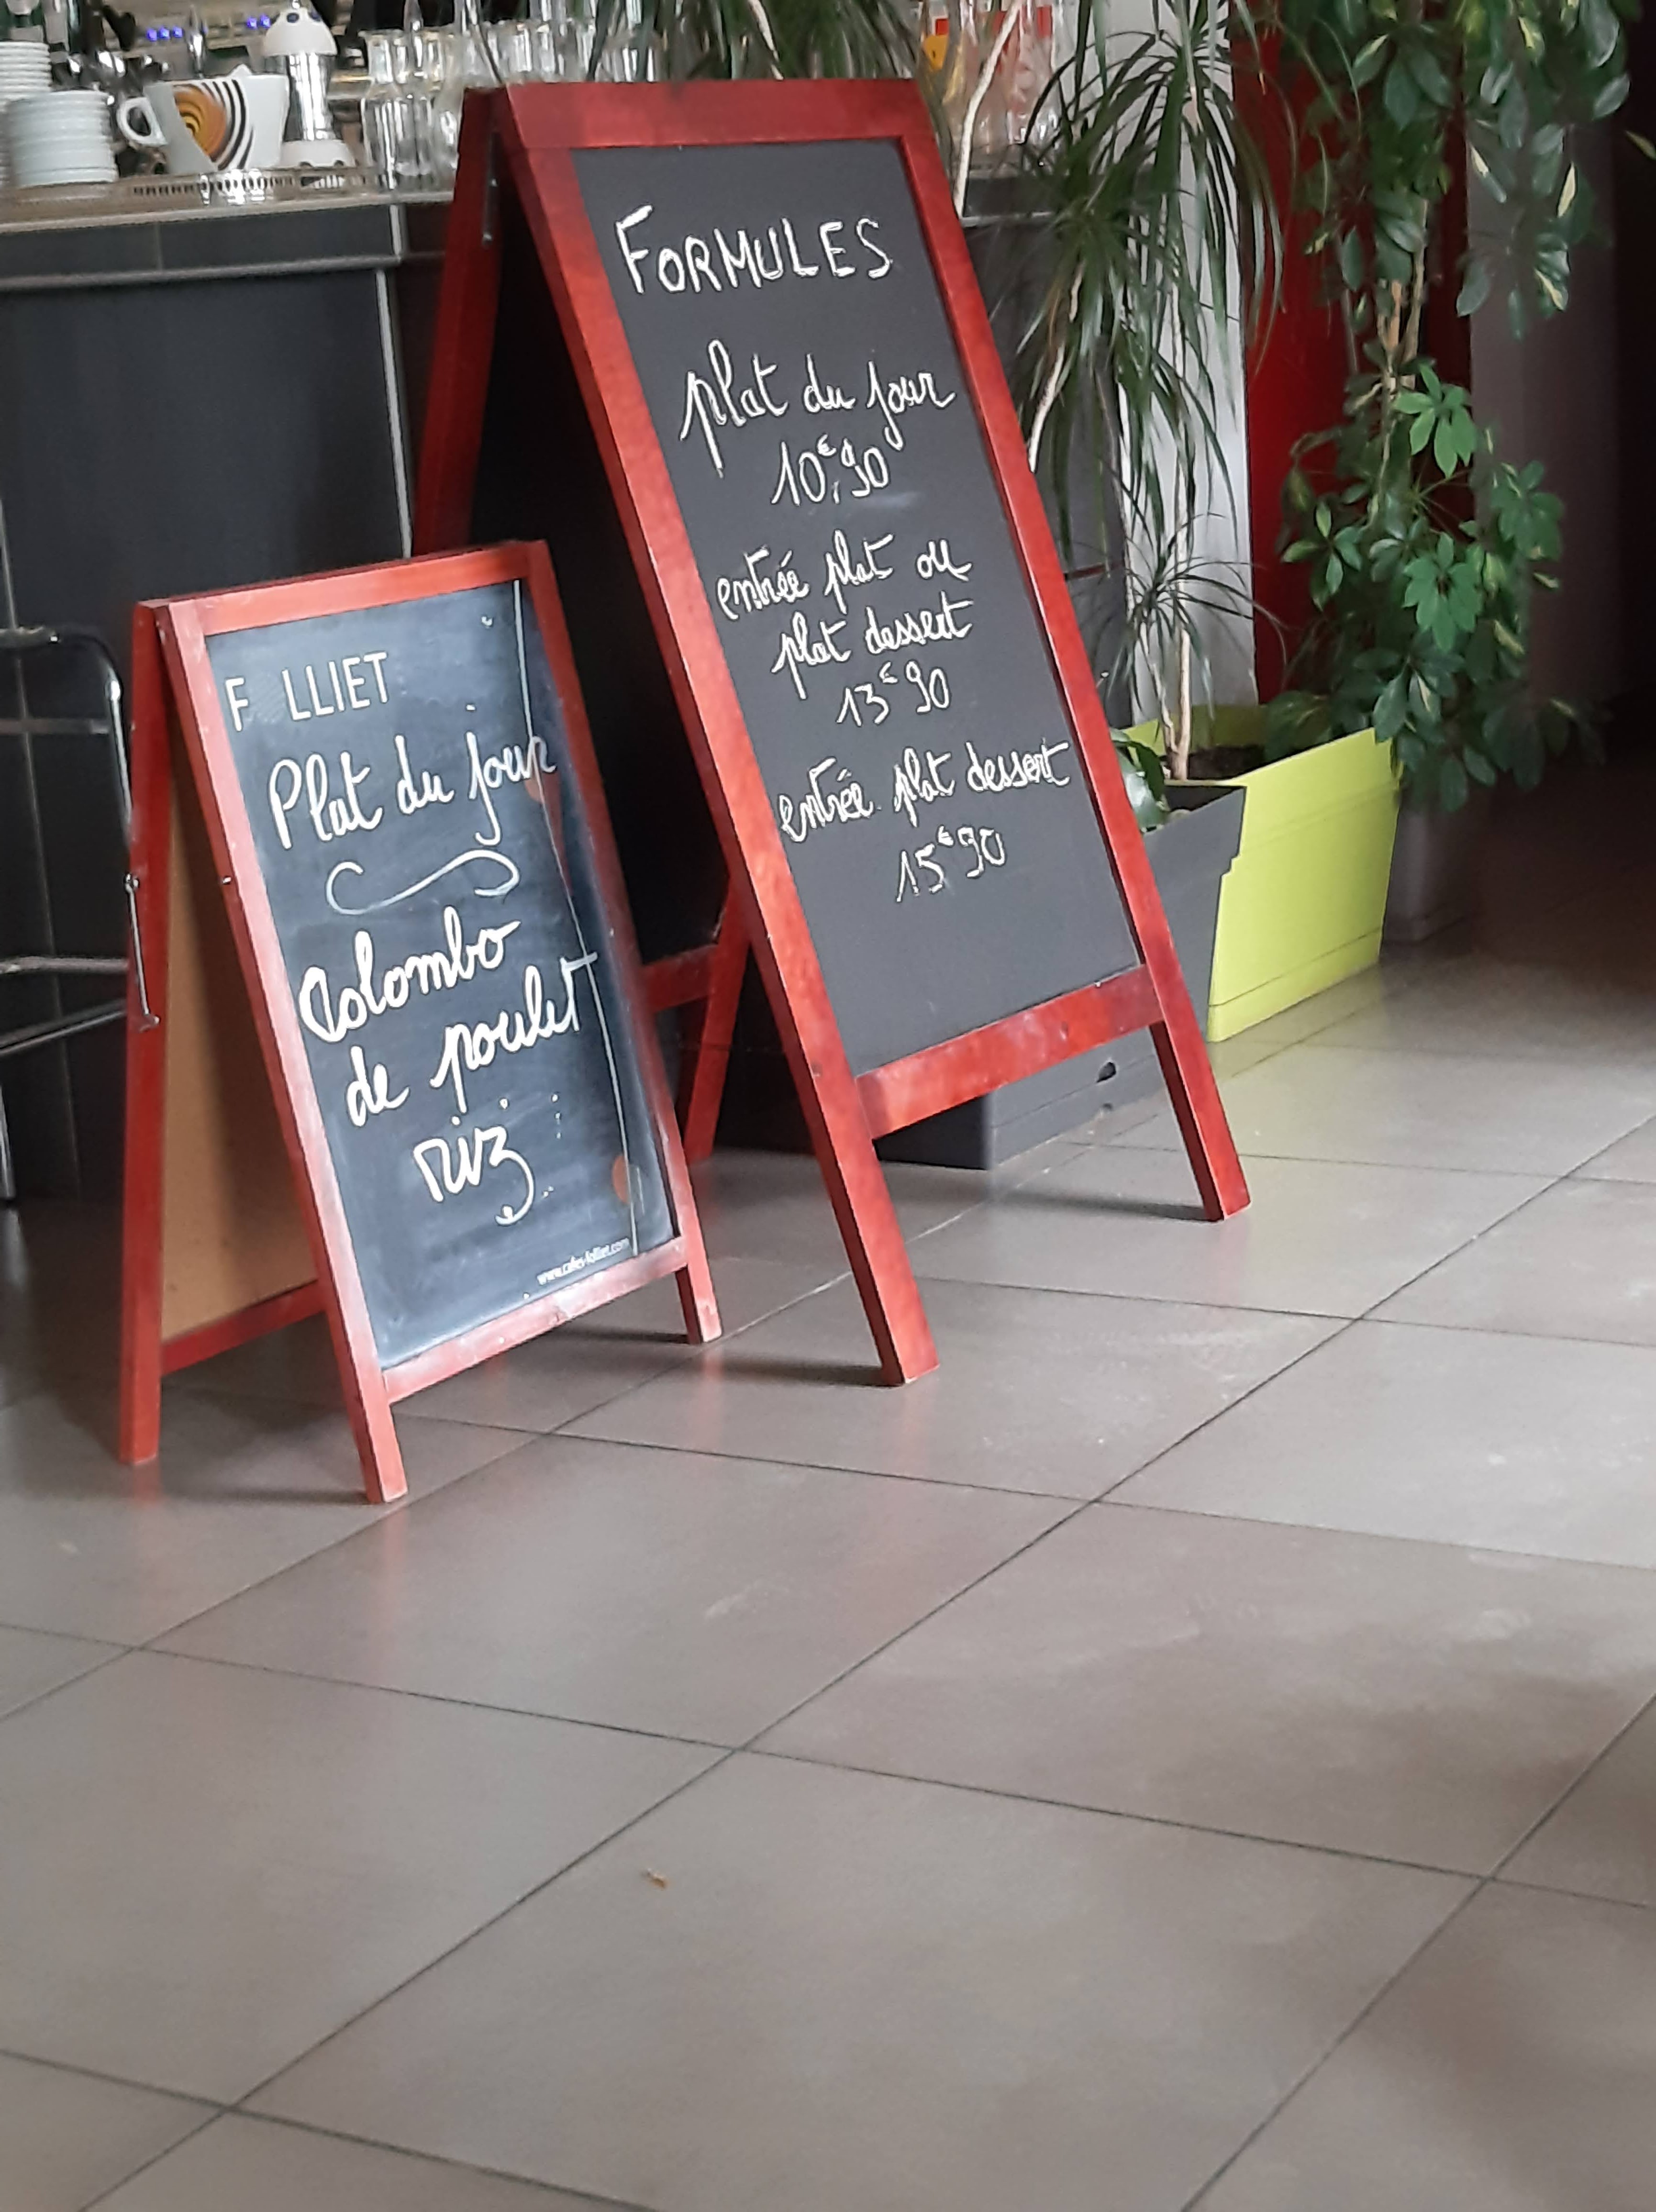 F LLIET
Plat du jour
Colombo
de poulet
riz
www.cafes-folliet.com
FORMULES
plat du jour
10,€90
entrée plat ou
plat dessert
13€90
entrée plat dessert
15€90